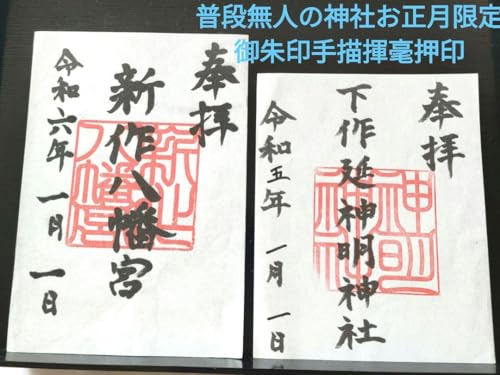 普段無人の神社お正月限定
御朱印手描揮毫押印
奉拝
新作八幡宮
令和六年 一月 一日
奉拝
下作延神明神社
令和五年 一月 一日